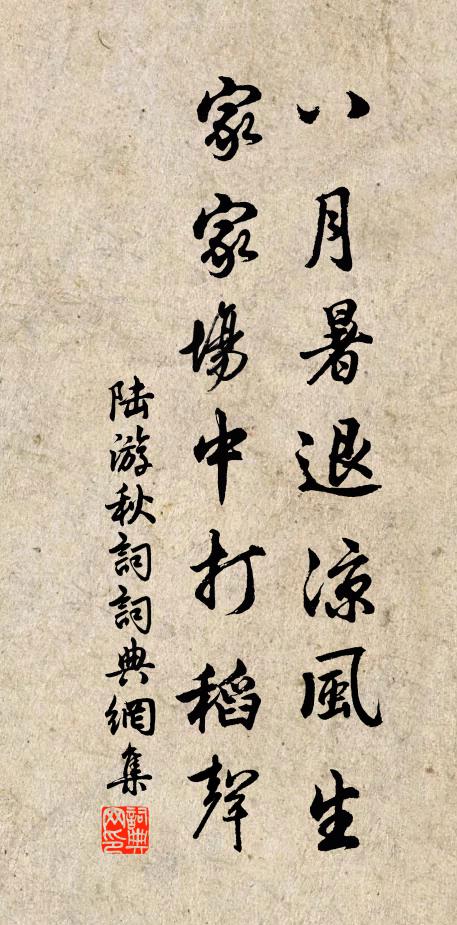 八月暑退涼風生
家家場中打稻聲
陆游秋詞詞典網集
詞典网印